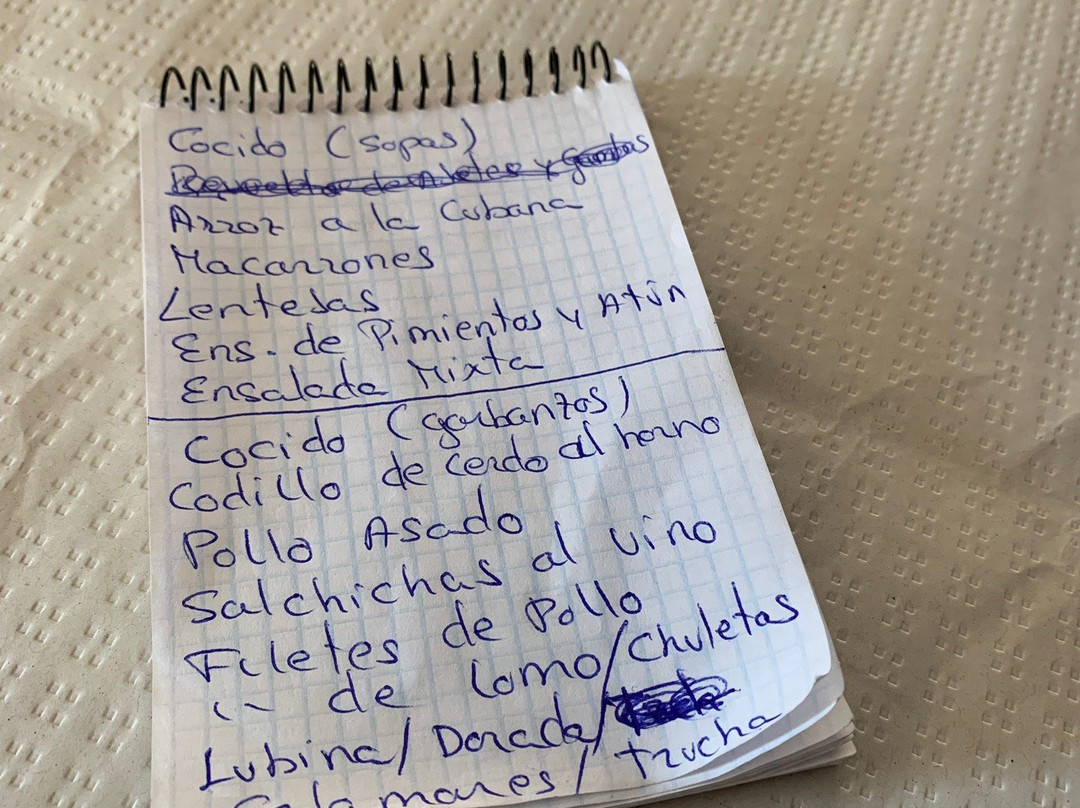 Cocido (sopas)
Revueltos de Ajetes y gambas
Arroz a la Cubana
Macarrones
Lentejas
Ens. de Pimientos y Atún
Ensalada Mixta
Cocido (garbanzos)
Codillo de Cerdo al horno
Pollo Asado
Salchichas al vino
Filetes de Pollo
" de Lomo/Chuletas
Lubina/Dorada/
Calamares/trucha